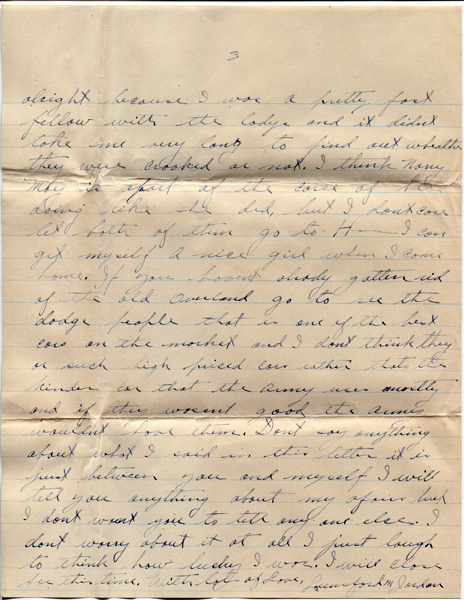 3
alright because I was a pretty fast
fellow with the ladys and it didnt
take me very long to find out wheather
they were crooked or not. I think
May is apart of the cause of
doing like she did, but I dont care
let both of them go to H— I can
get myself a nice girl when I come
home. If you havent alrady gotten rid
of the old Overland go to see the
dodge people that is one of the best
cars on the market and I dont think they
ar such high prised cars eather thats the
kinder car that the army uses mostly
and if they wasent good the army
wouldnt have them. Dont say anything
about what I said in this letter it is
just between you and myself I will
tell you anything about my afairs but
I dont want you to tell any one else. I
dont worry about it at all I just laugh
to think how lucky I was. I will close
for this time. With lots of Love, Lunsford M Jordan